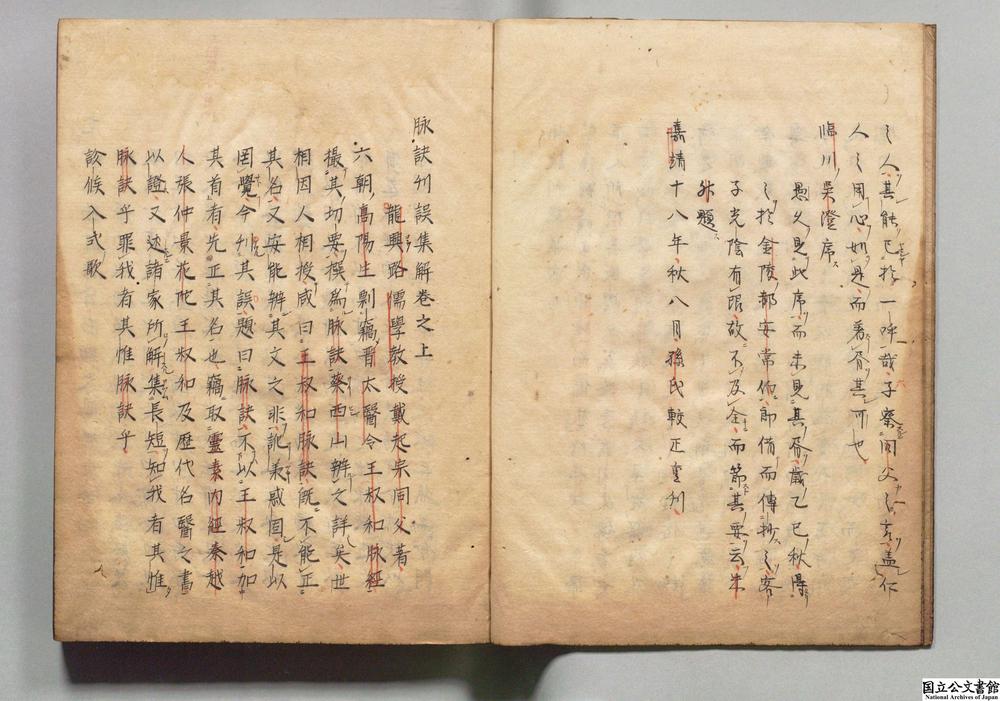 之人其能已於一呼哉予察同父之言盖仁
人之用心如是而著脊其可也
臨川吳澄序
愚久見此序而未見其脊歲乙巳秋得
之於金陵郝安常你節借而傳抄之客
子光陰有限故不及全而節其要云朱
外題
嘉靖十八年秋八月孫氏較正重刋
脉訣刋誤集解卷之上
龍興路儒學教授戴起宗同父著
六朝高陽生剽竊晋太醫令王叔和脉經
撮其切要撰爲脉訣蔡西山辨之詳矣世
相因人相授咸曰王叔和脉訣既不能正
其名又安能辨其文之非訛耒惑固是以
罔覺今刋其誤題曰脉訣不以王叔和加
其首者先正其名也竊取靈素內經秦越
人張仲景花陀王叔和及歴代名醫之書
以證又述諸家所解集長短知我者其惟
脉訣乎罪我者其惟脉訣乎
診候入式歌
国立公文書館
National Archives of Japan